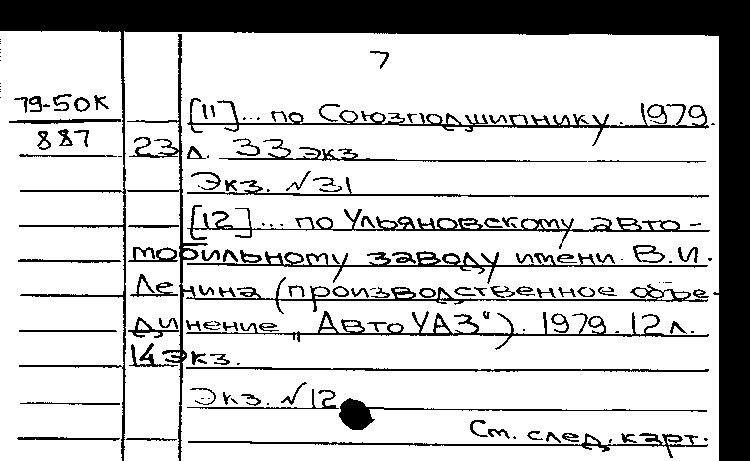 7
79-50к
887
[11]... по Союзподшипнику. 1979.
23 л. 33 экз.
Экз. №31
[12]... по Ульяновскому авто-
мобильному заводу имени В.И.
Ленина (производственное объе-
динение „АвтоУАЗ“). 1979. 12 л.
14 экз.
Экз. №12
См. след. карт.